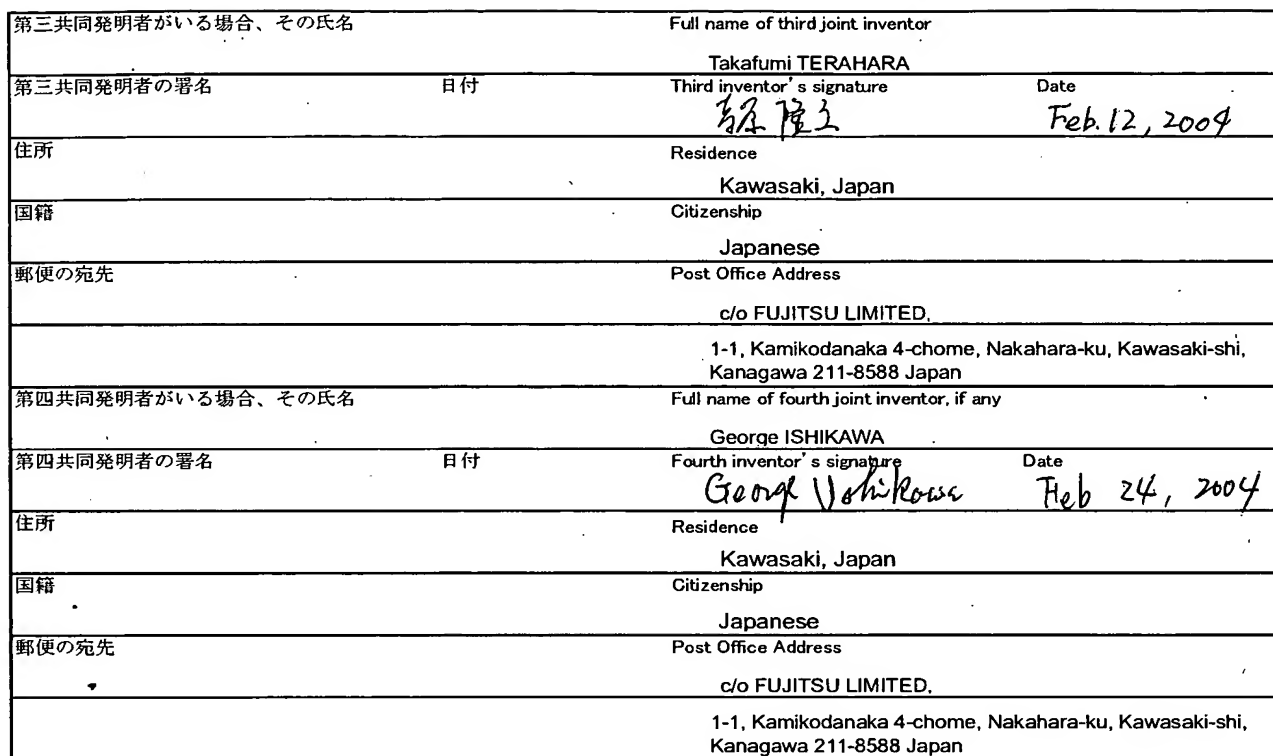 第三共同発明者がいる場合、その氏名 Full name of third joint inventor
Takafumi TERAHARA
第三共同発明者の署名 日付 Third inventor's signature Date
隆文 Feb. 12, 2004
住所 Residence
Kawasaki, Japan
国籍 Citizenship
Japanese
郵便の宛先 Post Office Address
c/o FUJITSU LIMITED,
1-1, Kamikodanaka 4-chome, Nakahara-ku, Kawasaki-shi,
Kanagawa 211-8588 Japan
第四共同発明者がいる場合、その氏名 Full name of fourth joint inventor, if any
George ISHIKAWA
第四共同発明者の署名 日付 Fourth inventor's signature Date
George Ishikawa Feb 24, 2004
住所 Residence
Kawasaki, Japan
国籍 Citizenship
Japanese
郵便の宛先 Post Office Address
c/o FUJITSU LIMITED,
1-1, Kamikodanaka 4-chome, Nakahara-ku, Kawasaki-shi,
Kanagawa 211-8588 Japan